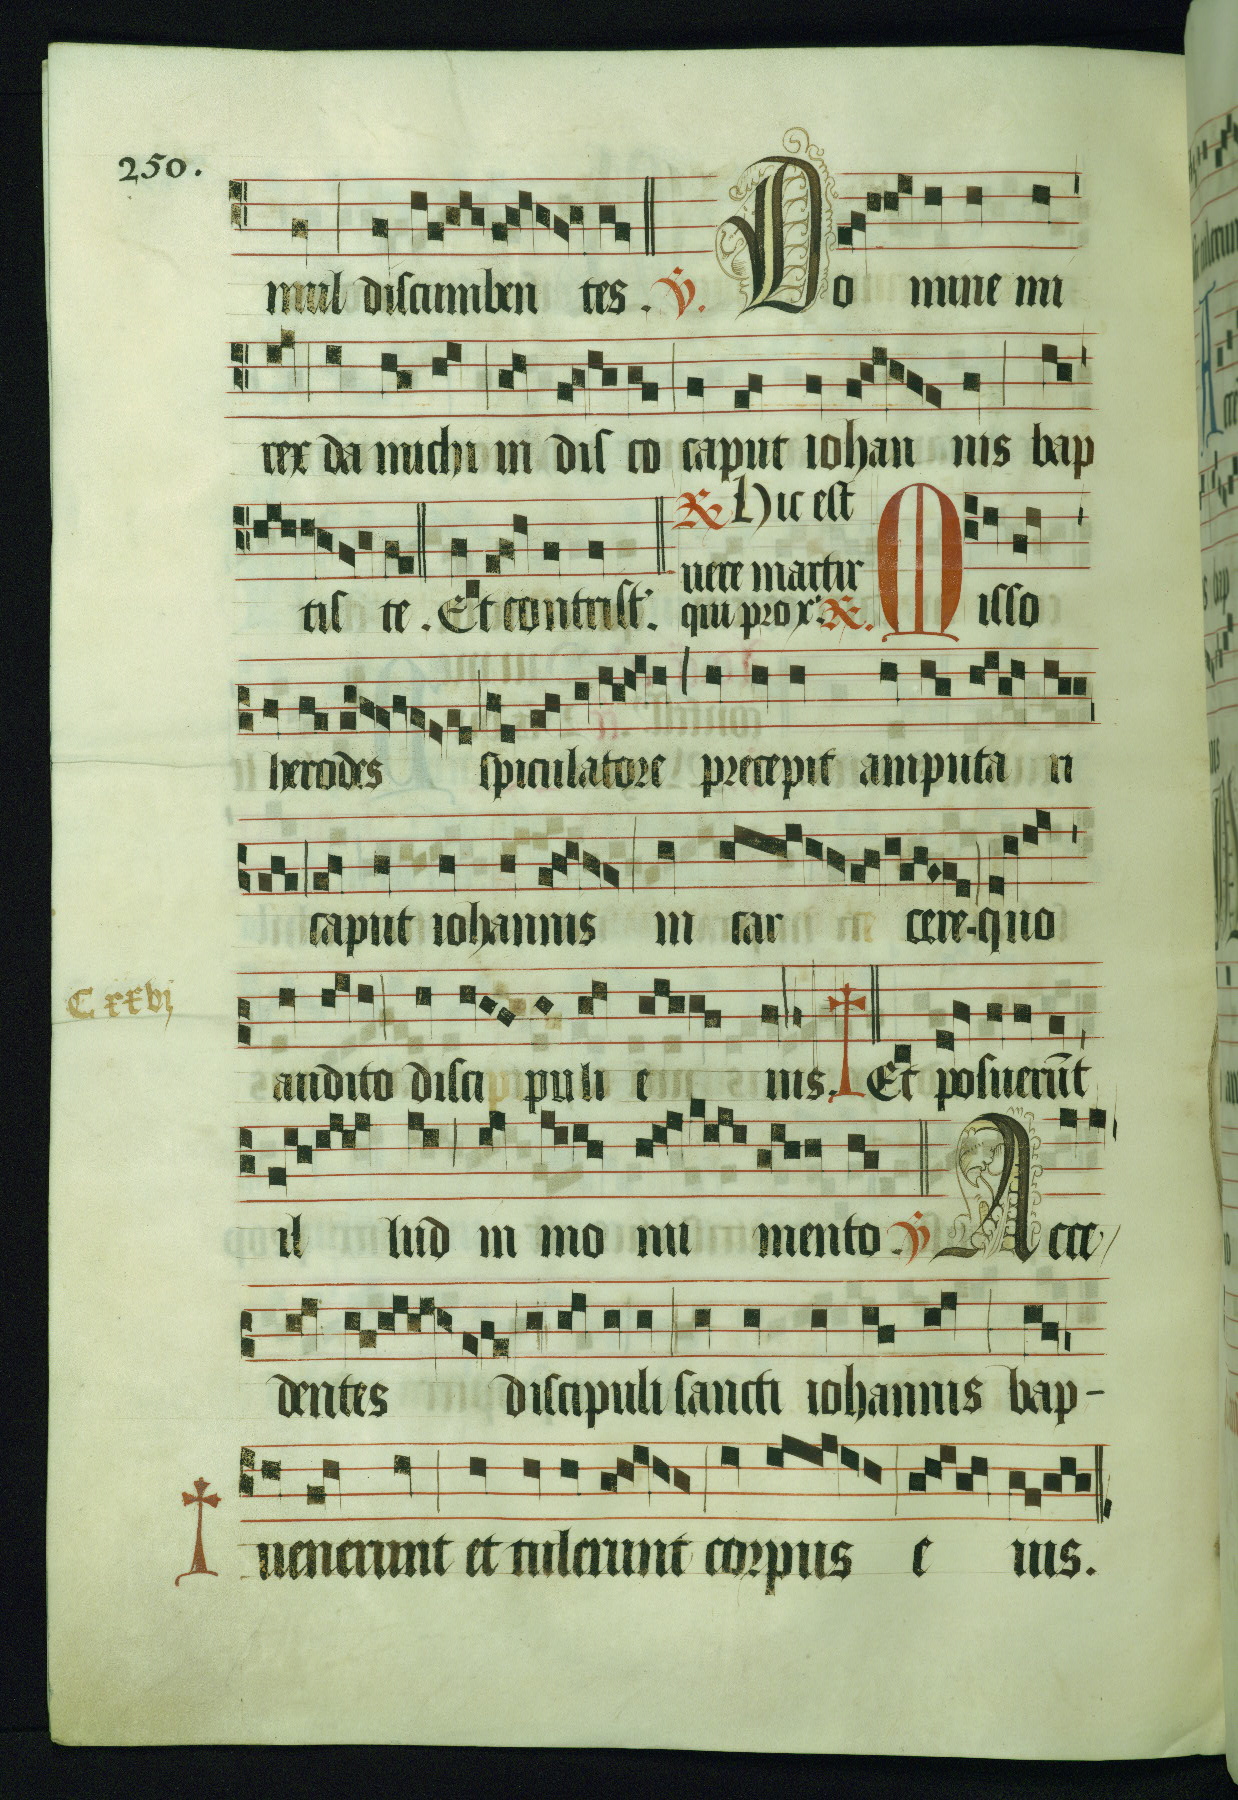 250.
mul discumben tes . v̇. Do mine mi
rex da michi in dis co caput iohan nis bap
tis te . Et contrist'. ℞ Hic est
uere martir
qui pro x'. ℞. Misso
herodes spiculatore precepit amputa ri
caput iohannis in car cere. quo
C xxvj
audito disci puli e ius. Et posuerūt
il lud in mo nu mento . v̇ Acce
dentes discipuli sancti iohannis bap-
uenerunt et tulerunt corpus e ius.